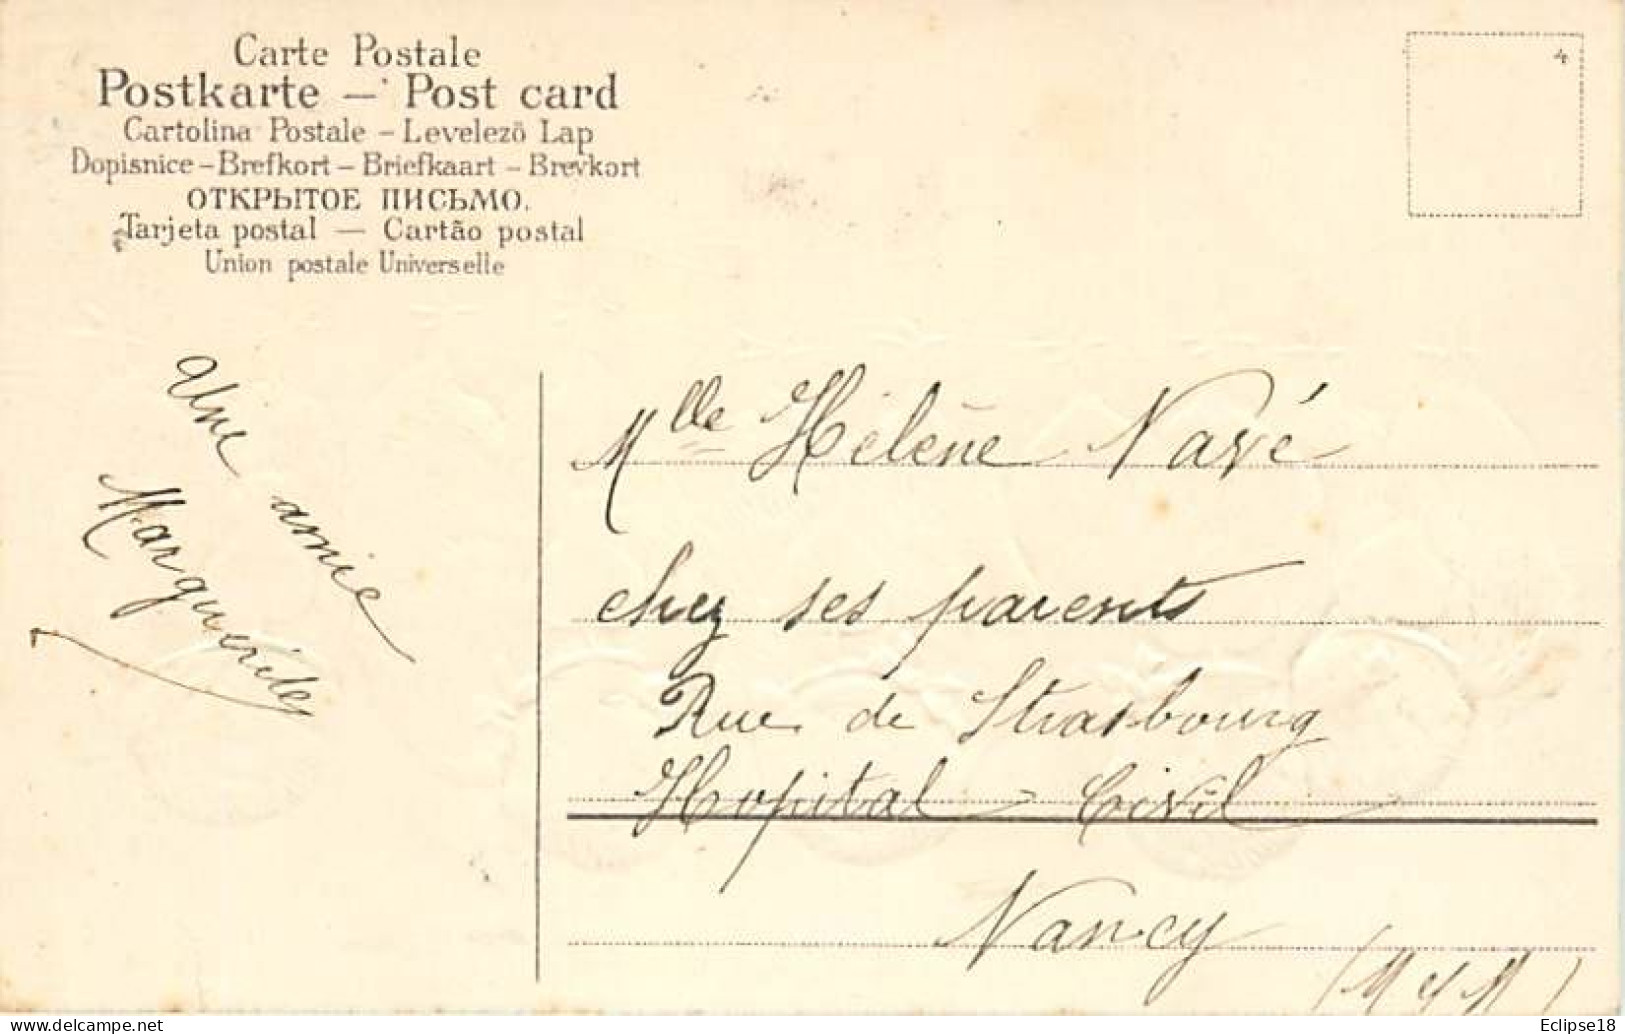 Carte Postale
Postkarte – Post card
Cartolina Postale – Levelezö Lap
Dopisnice – Brefkort – Briefkaart – Brevkort
ОТКРЫТОЕ ПИСЬМО.
Tarjeta postal — Cartão postal
Union postale Universelle
4
Une amie
Marguerite
Mlle Hélène Navé
chez ses parents
Rue de Strasbourg
Hopital - Civil
Nancy
(M et M)
Eclipse18